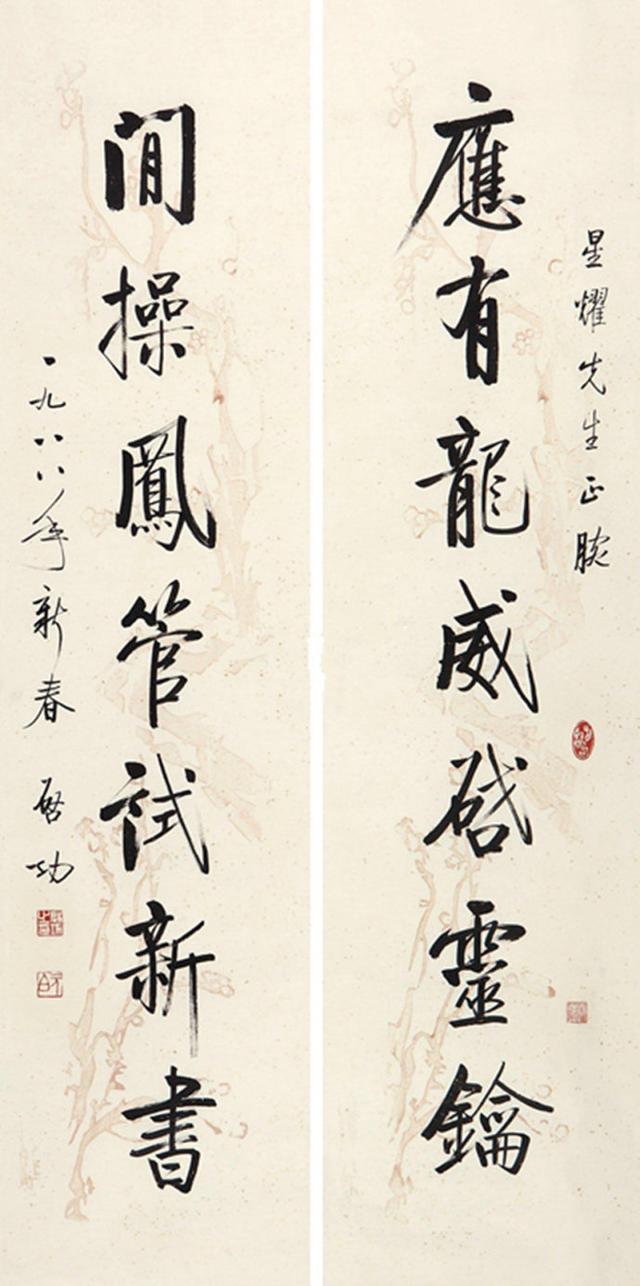 星耀先生正腕
應有龍威啟靈鑰
閒操鳳管試新書
一九八八年新春 啓功